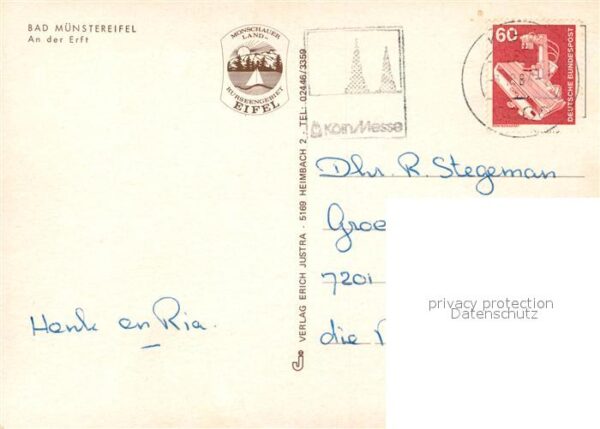 BAD MÜNSTEREIFEL
An der Erft
MONSCHAUER
LAND-
RURSEENGEBIET
EIFEL
Köln/Messe
60
DEUTSCHE BUNDESPOST
VERLAG ERICH JUSTRA · 5169 HEIMBACH 2 · TEL: 02446/3359
Dhr. R. Stegeman
Groe
7201
die
Henk en Ria.
privacy protection
Datenschutz